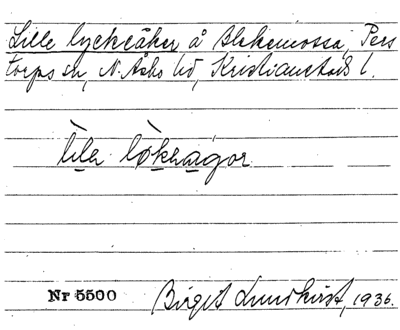 Lille lyckeåker å Blekemossa, Pers
torps sn, N. Åsbo hd, Kristianstads l.
lìla lø̀kəagor
Nr 5500 Birgit Lundkvist, 1936.